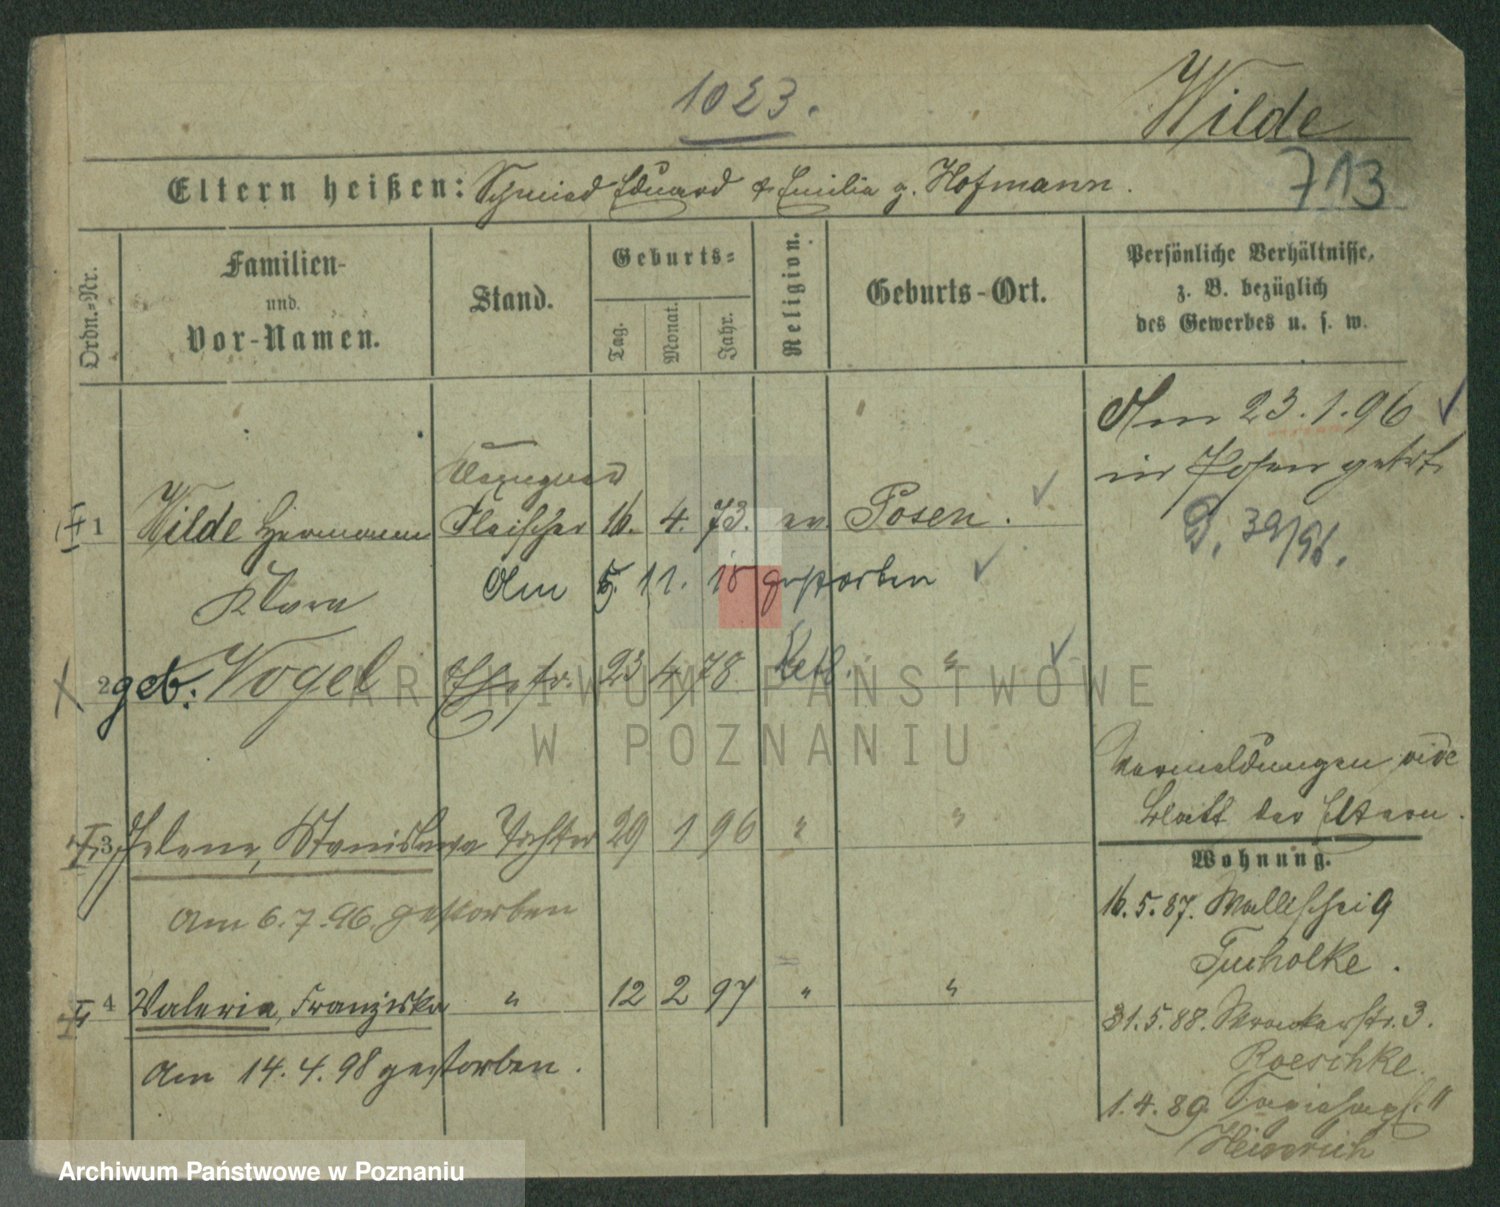 1023.
Wilde
713
Eltern heißen: Schmied Eduard & Emilia g. Hofmann.
Ordn.-Nr.
Familien-
und
Vor-Namen.
Stand.
Geburts-
Tag.
Monat.
Jahr.
Religion.
Geburts-Ort.
Persönliche Verhältnisse,
z. B. bezüglich
des Gewerbes u. s. w.
Am 23.1.96
in Posen getrt.
1 Wilde Hermann Fleischer 16. 4. 73. ev. Posen.
Am 5. 11. 18 gestorben
Klara
2 geb. Vogel Ehefr. 23 4 78. kath. "
Vermeldungen vide
Blatt der Eltern.
3 Helene, Stanislawa Tochter 29 1 96 " "
Am 6.7.96. gestorben
4 Valeria, Franziska " 12 2 97 " "
Am 14.4.98 gestorben.
Wohnung.
16.5.87. Wallischei 9
Tucholke.
31.5.88. Wronkerstr. 3.
Roeschke.
1.4.89. 11
Heinrich
ARCHIWUM PAŃSTWOWE
W POZNANIU
Archiwum Państwowe w Poznaniu